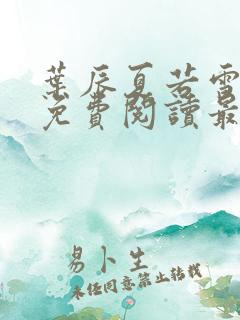 葉辰夏若雪
免費閱讀最
易卜生
未經同意禁止轉載